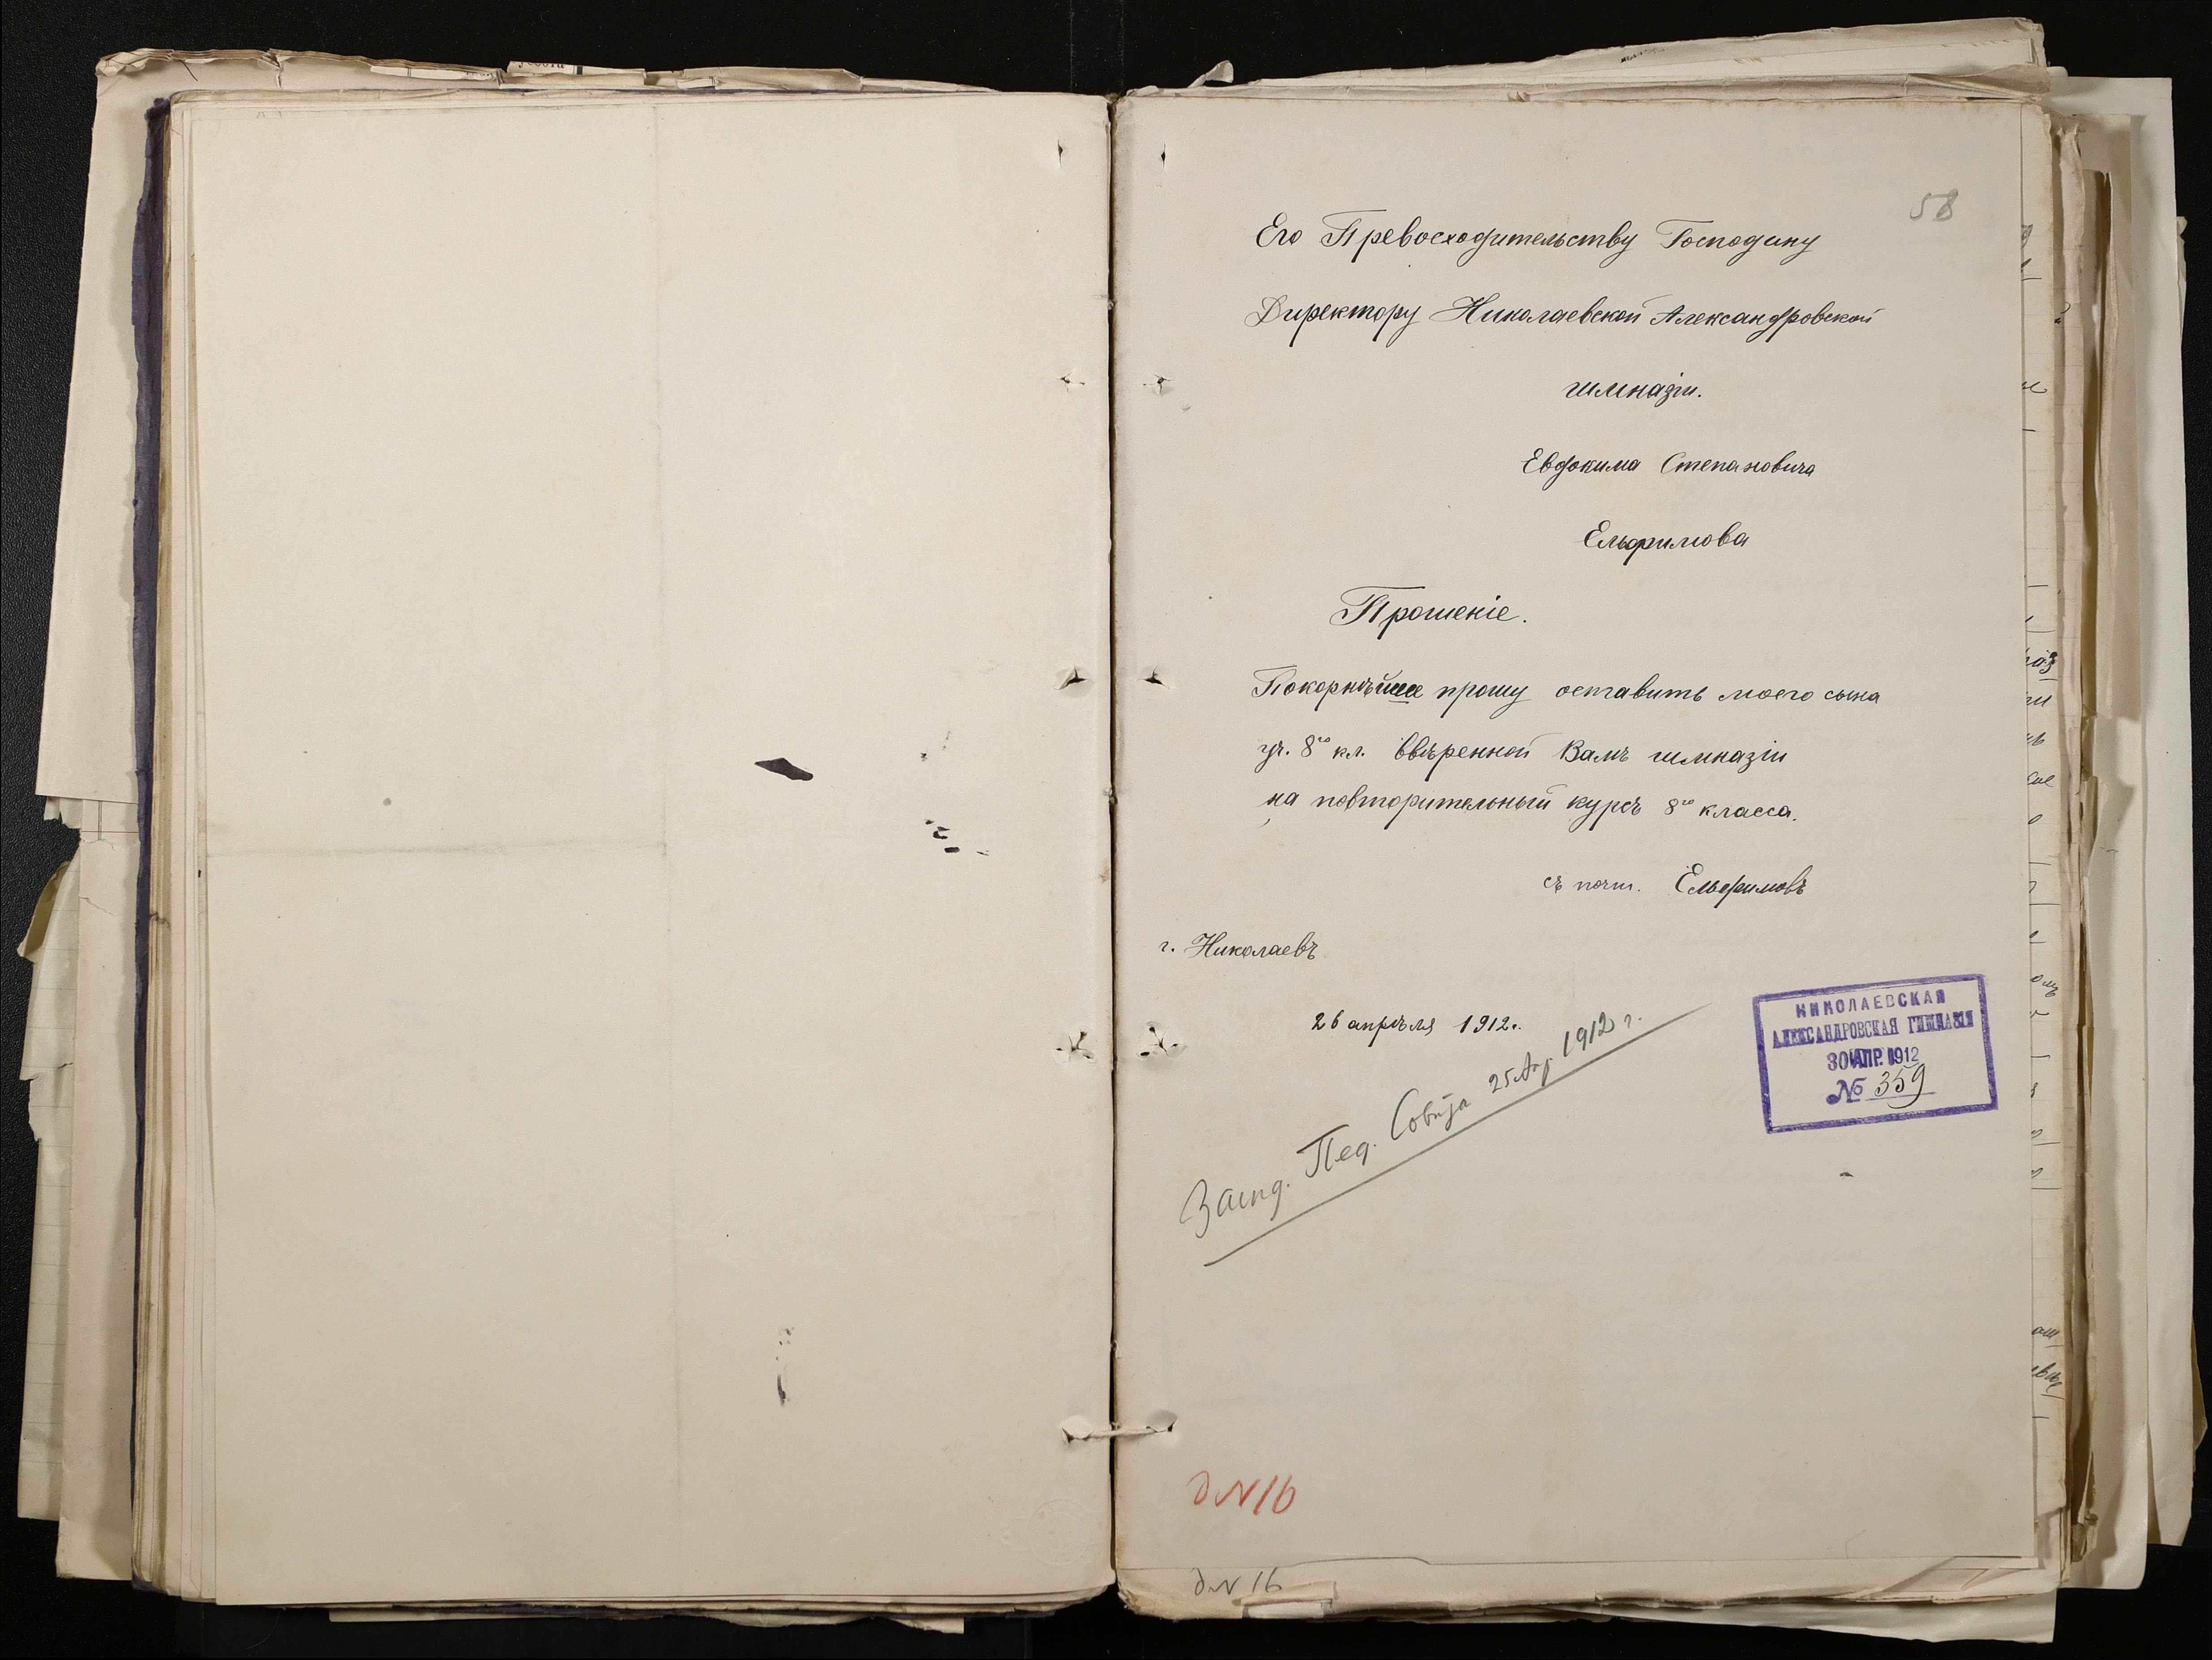 58
Его Превосходительству Господину
Директору Николаевской Александровской
гимназіи.
Евдокима Степановича
Ельфимова
Прошеніе.
Покорнѣйше прошу оставить моего сына
уч. 8го кл. ввѣренной Вамъ гимназіи
на повторительный курсъ 8го класса.
съ почт. Ельфимовъ
г. Николаевъ
26 апрѣля 1912г.
Засѣд. Пед. Совѣта 25 Апр. 1912 г.
НИКОЛАЕВСКАЯ
АЛЕКСАНДРОВСКАЯ ГИМНАЗІЯ
30 АПР. 1912
№ 359
д N 16
д N 16